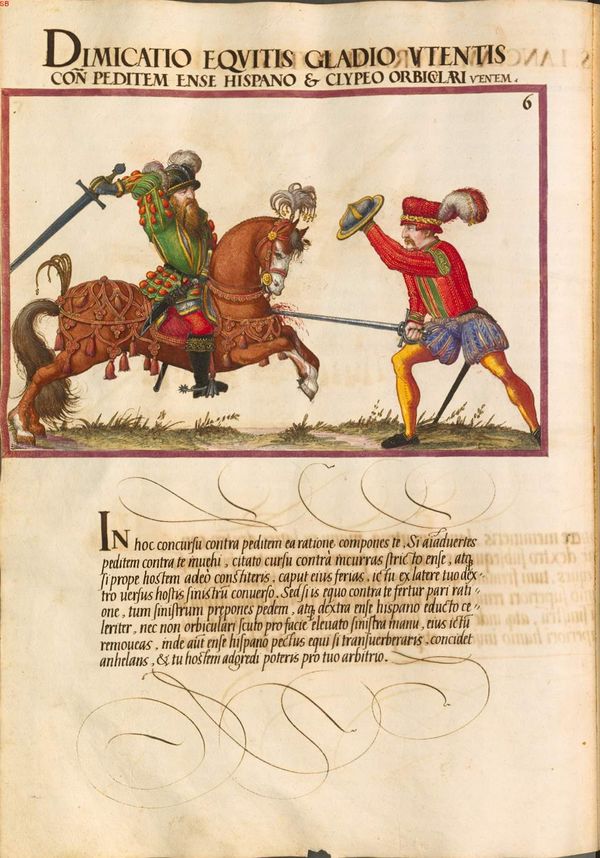 SB
DIMICATIO EQVITIS GLADIO VTENTIS
COÑ PEDITEM ENSE HISPANO & CLYPEO ORBICVLARI VENEM.
6
IN hoc concursu contra peditem ea ratione compones te. Si aĩaduertes
peditem contra te inuehi, citato cursu contrà incurras stricto ense, atq3
si prope hostem adeò constiteris, caput eius ferias, ictu ex latere tuo dex-
tro versus hostis sinistrũ conuerso. Sed si is equo contra te fertur pari rati-
one, tum sinistrum prepones pedem, atq3 dextra ense hispano educto ce-
leriter, nec non orbiculari scuto pro facie eleuato sinistra manu, eius ictũ
remoueas, inde aũt ense hispano pectus equi si transuerberaris, concidet
anhelans, & tu hostem adgredi poteris pro tuo arbitrio.